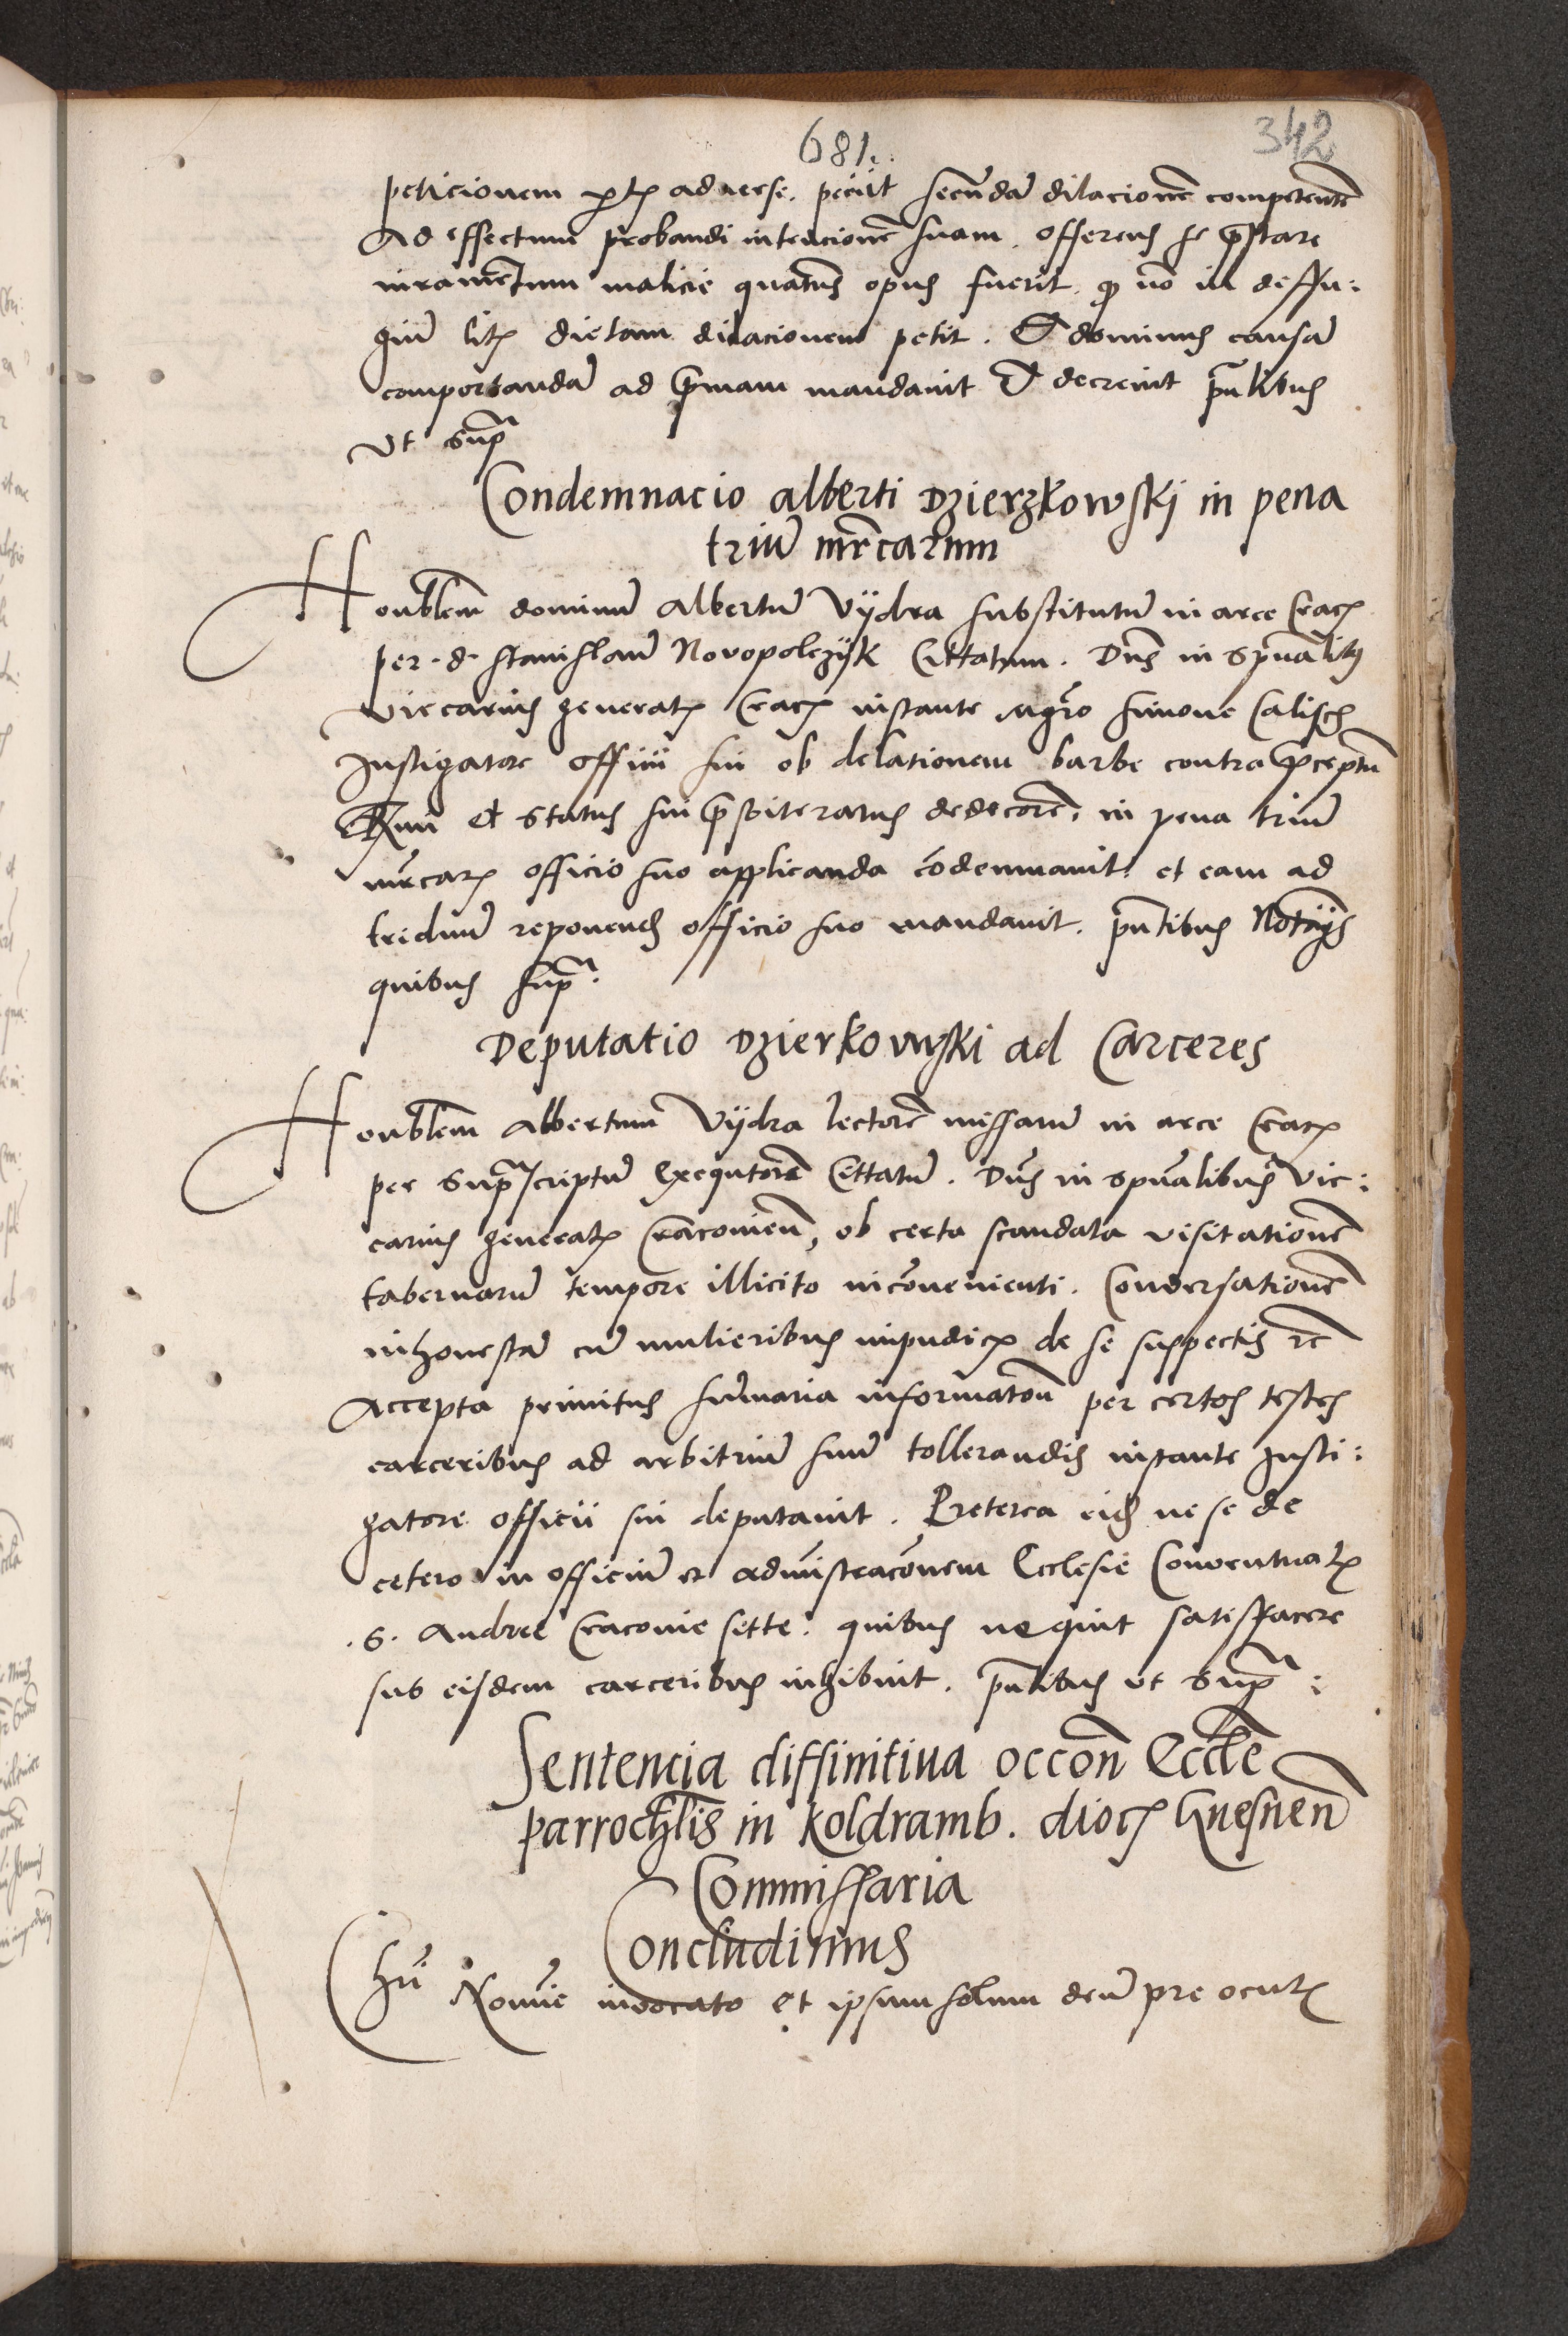 681.
342
peticionem ptꝭ aduerse. peciit secundā dilacionē competentē
Ad effectum probandi intencionē suam. offerens se p̄stare
iuramētum malicie quatenꝰ opus fuerit. ꝙ nō in deffu:
giū litꝭ dictam dilacionem petit. Et dominus causā
comportandā ad p̄mam mandauit Et decreuit pn̄tibus
Vt sup̄
Condemnacio alberti Dzierzkowskj in pena
triū mr̄carum
Honblēm dominū Albertū Vÿdra substitutū in arce Cracꝭ
per .d. Stanislaū Novopolczÿk Cittatum. Dn̄s in Spūalibꝰ
Viccarius generalꝭ Cracꝭ instante Mgr̄o Simone Calisch
Instigatore officii sui ob delationem barbe contra p̄ceptū
suū et status sui p̄sbiteratus dedecorē, in pena triū
mr̄carꝭ officio suo applicanda cōdemnauit et eam ad
triduū reponendꝭ officio suo mandauit. pn̄tibus Notarÿs
quibus sup̄.
Deputatio Dzierkowski ad Carceres
Honblēm Albertum Vÿdra lectorē missarū in arce Cracꝭ
per Sup̄scriptū Exequtorē Cittatū. Dn̄s in Spūalibus Vic:
carius generalꝭ Cracouien̄, ob certa scandala visitationē
tabernarū tempore illicito incōuenienti. Conversationē
inhonestā cū mulieribus impudicꝭ de se suspectis rc̄
Accepta primitus sum̄aria informatōn̄ per certos testes
carceribus ad arbitriū suū tollerandis instante Insti:
gatore officii sui deputauit. Preterea eidꝭ ne se de
cetero in officiū et admīstracōnem Ecclesie Conventualꝭ
.S. Andree Cracouie sctte. quibus nequit satisfacere
sub eisdem carceribus inhibuit. pn̄tibus ut Sup̄ :
Sentencia diffinitiua occōn̄ Eccl̄e
parrochl̄is in Koldramb. diocꝭ Gnesnen̄
Commissaria
Concludimus
Chr̄i Nomīe inuocato et ipsum solum deū pre oculꝭ